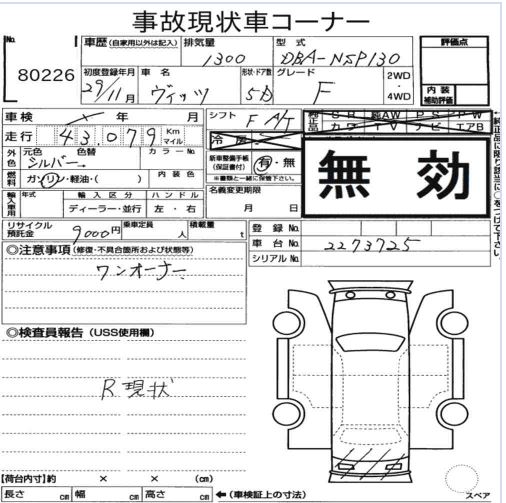 事故現状車コーナー
No. 80226
車歴 (自家用以外は記入)
排気量 1300
型式 DBA-NSP130
評価点
初度登録年月 29/11月
車名 ヴィッツ
形状・ドア数 5D
グレード F
2WD・4WD
内装補助評価
車検 年 月
シフト F A/T
純正品 SR 純AW PS PW
カワ TV ナビ エアB
走行 43,079 Km マイル
冷房
外色 元色 シルバー 色替 カラーNo.
新車整備手帳(保証書付) 有・無
※書類と一緒に保管下さい。
無効
燃料 ガソリン・軽油・( ) 内装色
名義変更期限 月 日
輸入車用 年式 輸入区分 ディーラー・並行 ハンドル 左・右
リサイクル預託金 9000円 乗車定員 人 積載量 t
登録No.
車台No. 2273725
シリアルNo.
◎注意事項 (修復・不具合箇所および状態等)
ワンオーナー
◎検査員報告 (USS使用欄)
R現状
【荷台内寸】約 × × (cm)
長さ cm 幅 cm 高さ cm ←(車検証上の寸法)
スペア
←純正品に限り該当に○をつけて下さい。